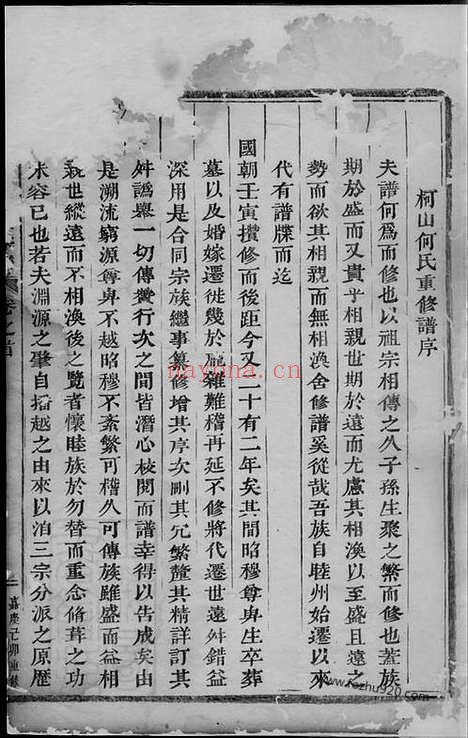 柯山何氏重修譜序
夫譜何為而修也以祖宗相傳之久子孫生聚之繁而修也蓋族
期於盛而又貴乎相親世期於遠而尤慮其相渙以至盛且遠之
勢而欲其相親而無相渙舍修譜奚從哉吾族自睦州始遷以來
代有譜牒而迄
國朝壬寅攢修而後距今又二十有二年矣其間昭穆尊卑生卒葬
墓以及婚嫁遷徙幾於龐雜難稽再延不修將代遷世遠舛錯益
深用是合同宗族繼事纂修增其序次刪其冗繁釐其精詳訂其
舛譌舉一切傳贊行次之間皆潛心校閱而譜幸得以告成矣由
是溯流窮源尊卑不越昭穆不紊繁可稽久可傳族雖盛而益相
親世縱遠而不相渙後之覽者懷睦族於勿替而重念脩葺之功
未容已也若夫淵源之肇自播越之由來以洎三宗分派之原歷
卷之首
一
嘉慶己卯重修
nayona.cn
www.fozhu920.com